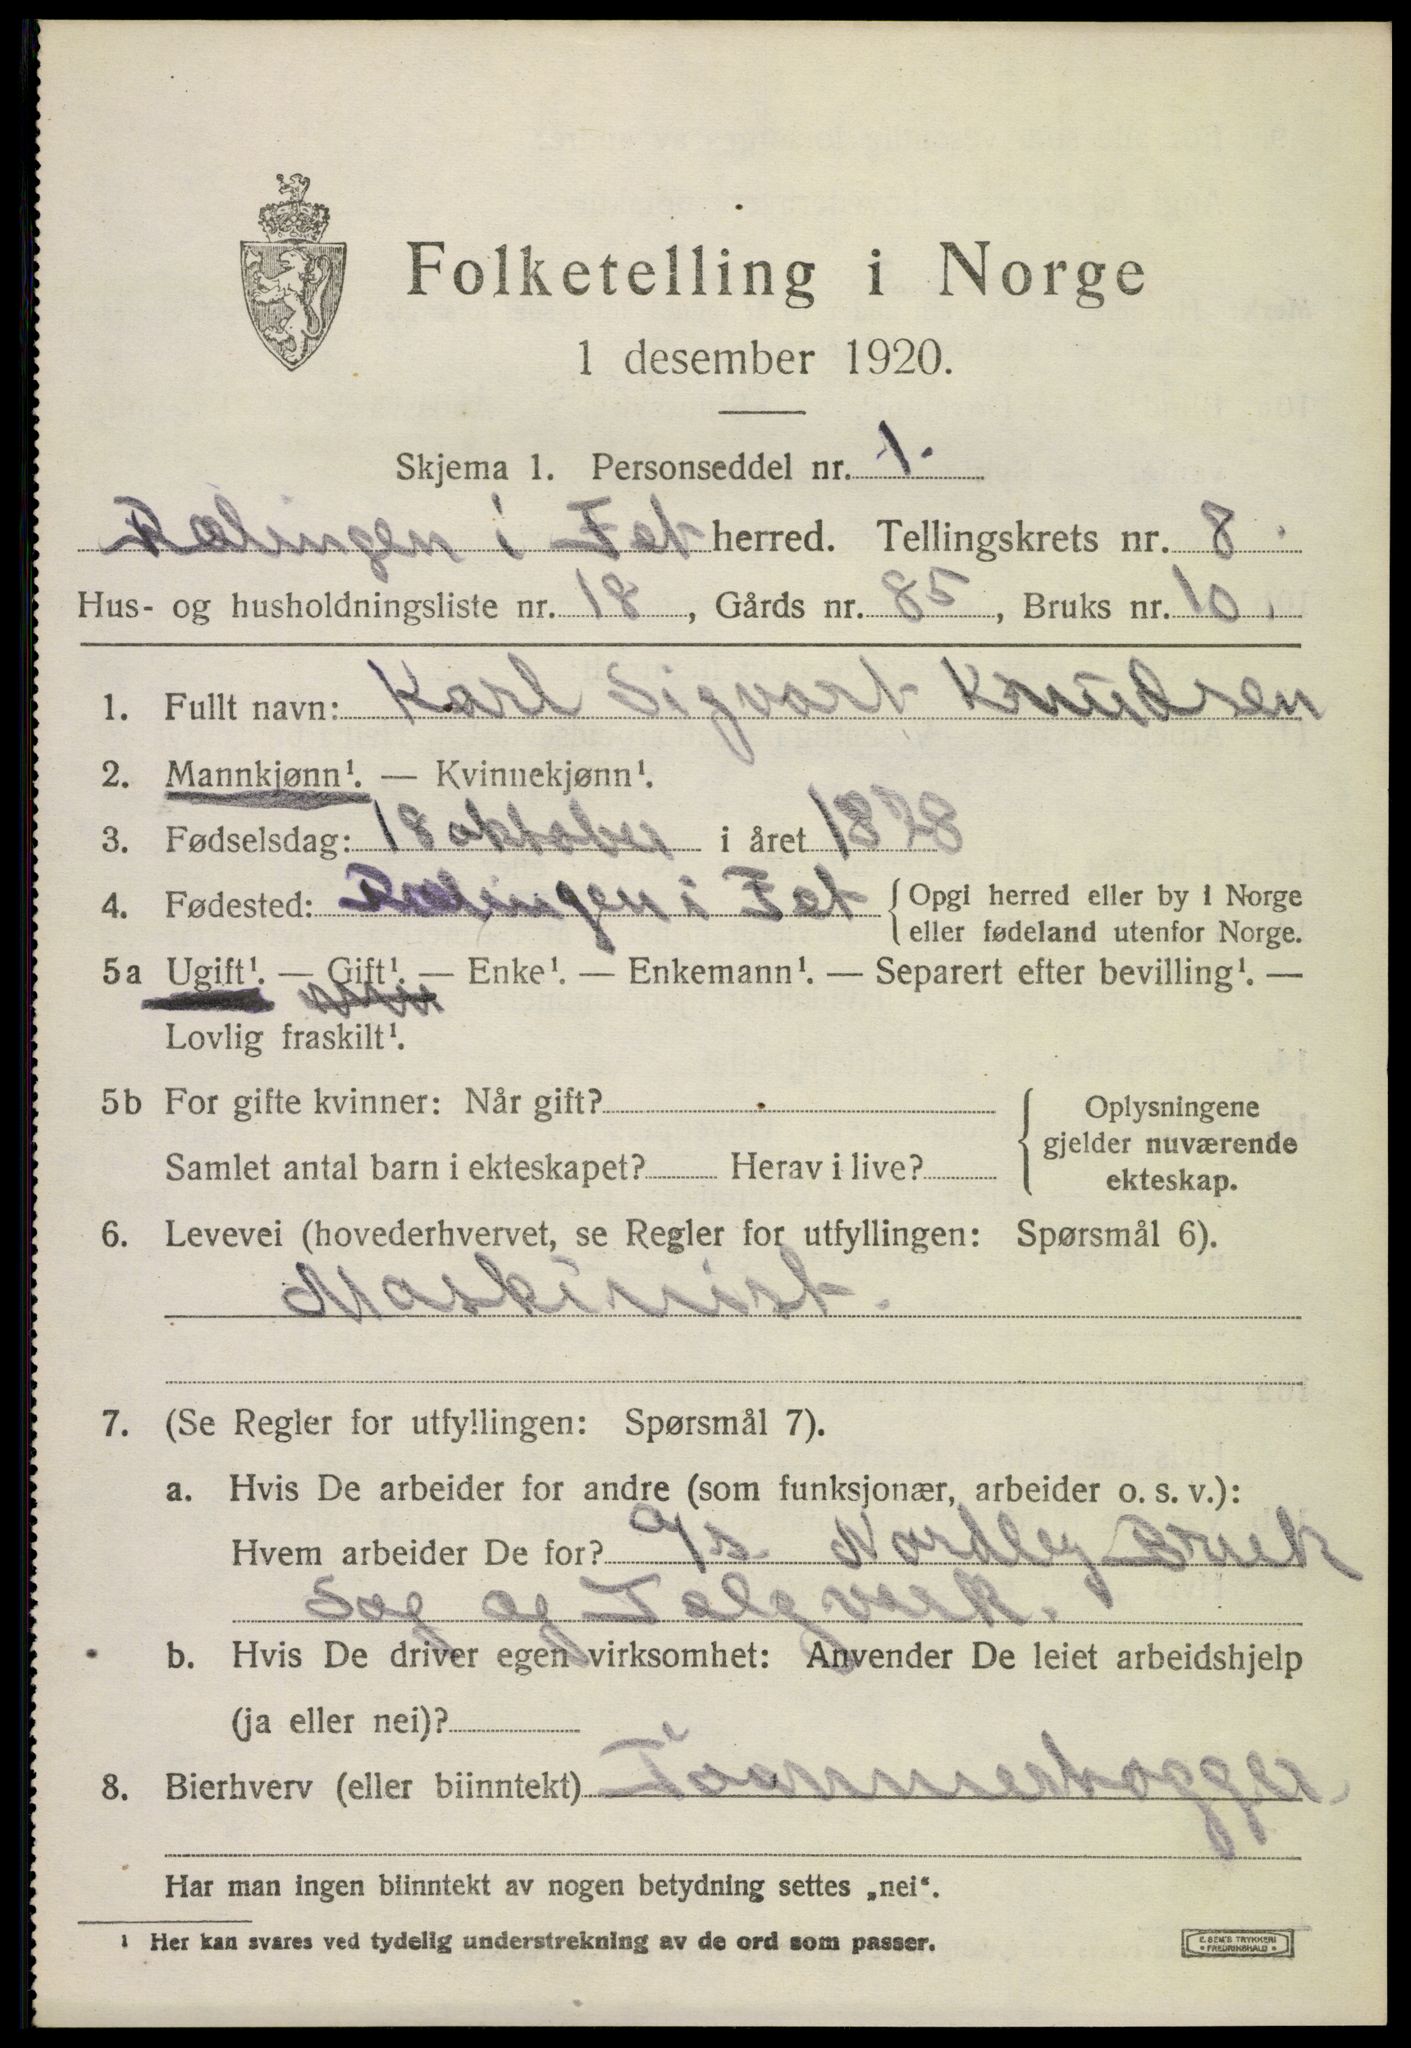 Folketelling i Norge
1 desember 1920.
Skjema 1. Personseddel nr. 1.
Rælingen i Fet herred. Tellingskrets nr. 8.
Hus- og husholdningsliste nr. 18, Gårds nr. 85, Bruks nr. 10.
1. Fullt navn: Karl Sigvart Knudsen
2. Mannkjønn¹. — Kvinnekjønn¹.
3. Fødselsdag: 18 oktober i året 1878
4. Fødested: Rælingen i Fet { Opgi herred eller by i Norge
eller fødeland utenfor Norge.
5a Ugift¹. — Gift¹. — Enke¹. — Enkemann¹. — Separert efter bevilling¹. —
Lovlig fraskilt¹.
5b For gifte kvinner: Når gift?
Samlet antal barn i ekteskapet? Herav i live?
Oplysningene
gjelder nuværende
ekteskap.
6. Levevei (hovederhvervet, se Regler for utfyllingen: Spørsmål 6).
Maskinist.
7. (Se Regler for utfyllingen: Spørsmål 7).
a. Hvis De arbeider for andre (som funksjonær, arbeider o. s. v.):
Hvem arbeider De for? A/s Nordby Bruk
Sag og
b. Hvis De driver egen virksomhet: Anvender De leiet arbeidshjelp
(ja eller nei)?
8. Bierhverv (eller biinntekt) Tømmerhogger.
Har man ingen biinntekt av nogen betydning settes „nei“.
¹ Her kan svares ved tydelig understrekning av de ord som passer.
E. SEM'S TRYKKERI
• FREDRIKSHALD •